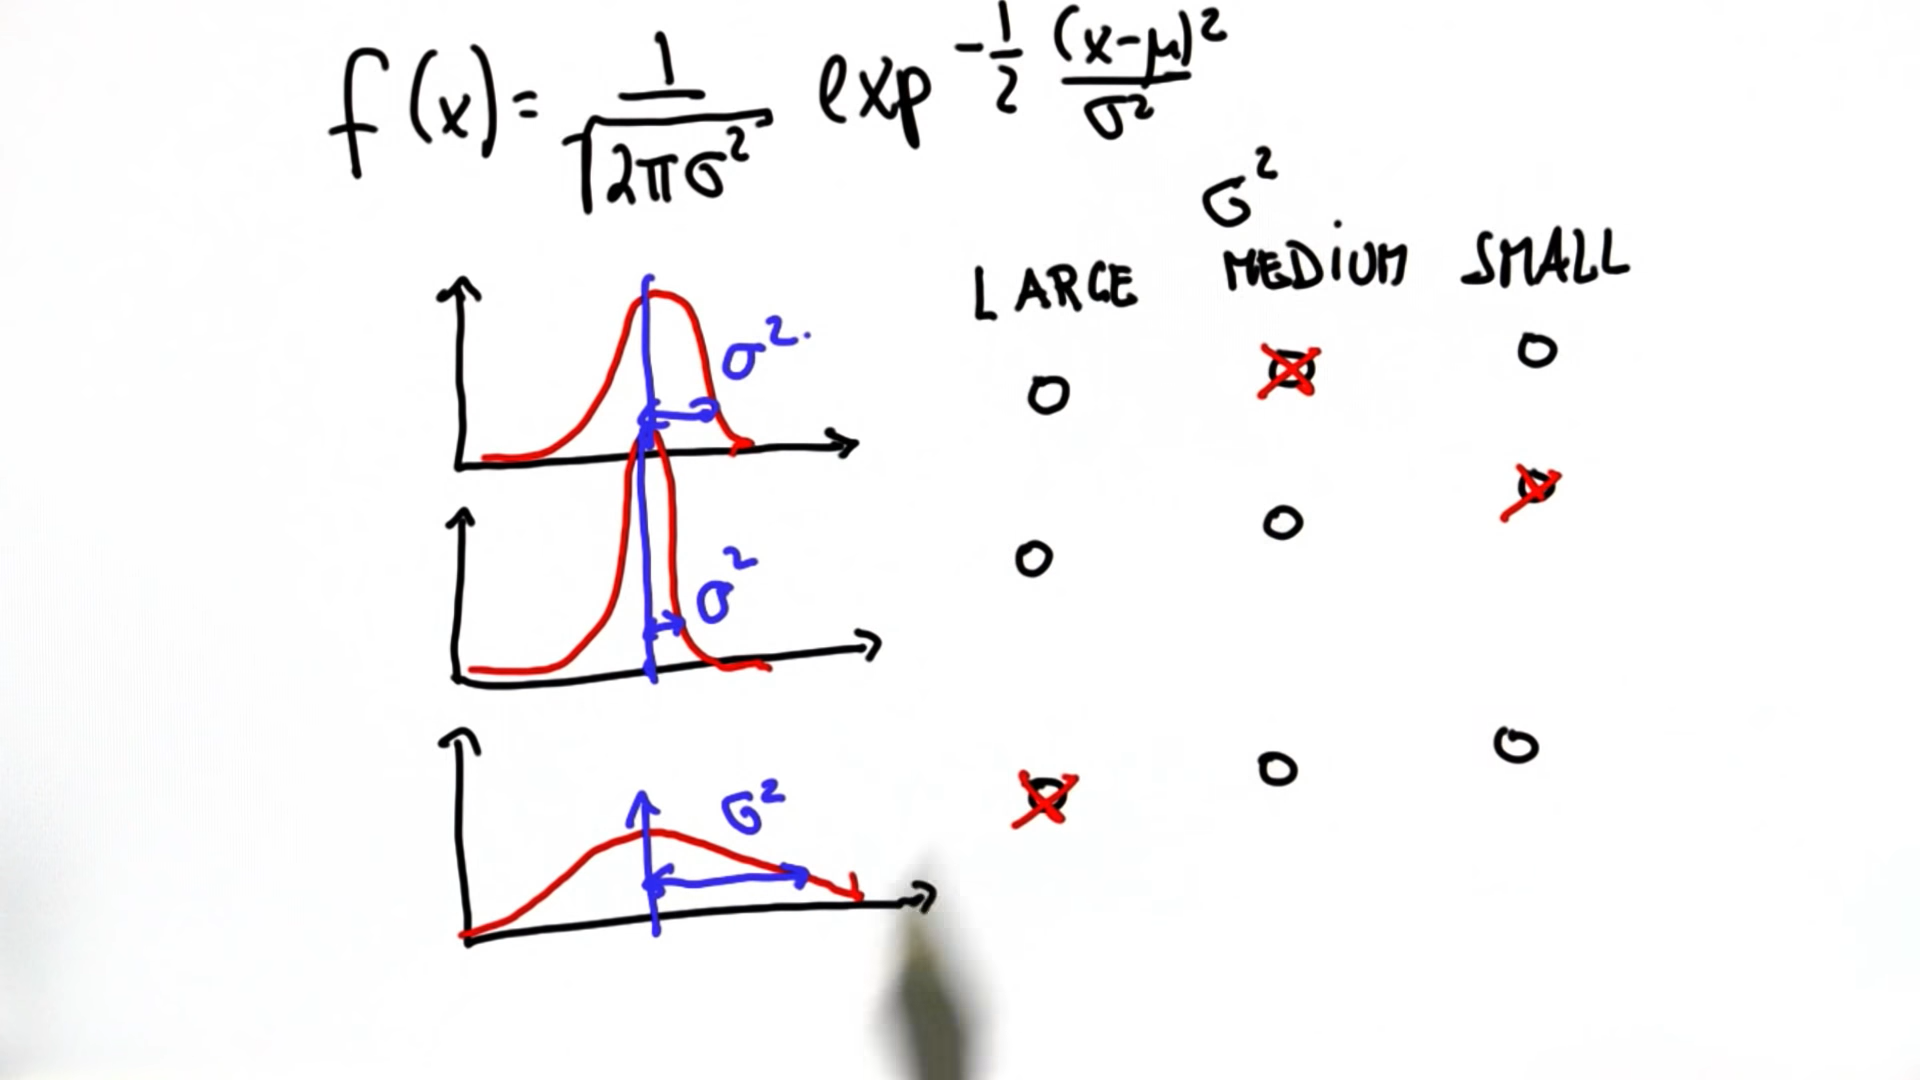 f(x) = 1/√(2πσ²) exp^(-1/2 (x-μ)²/σ²)
σ²
LARGE MEDIUM SMALL
σ²
σ²
σ²